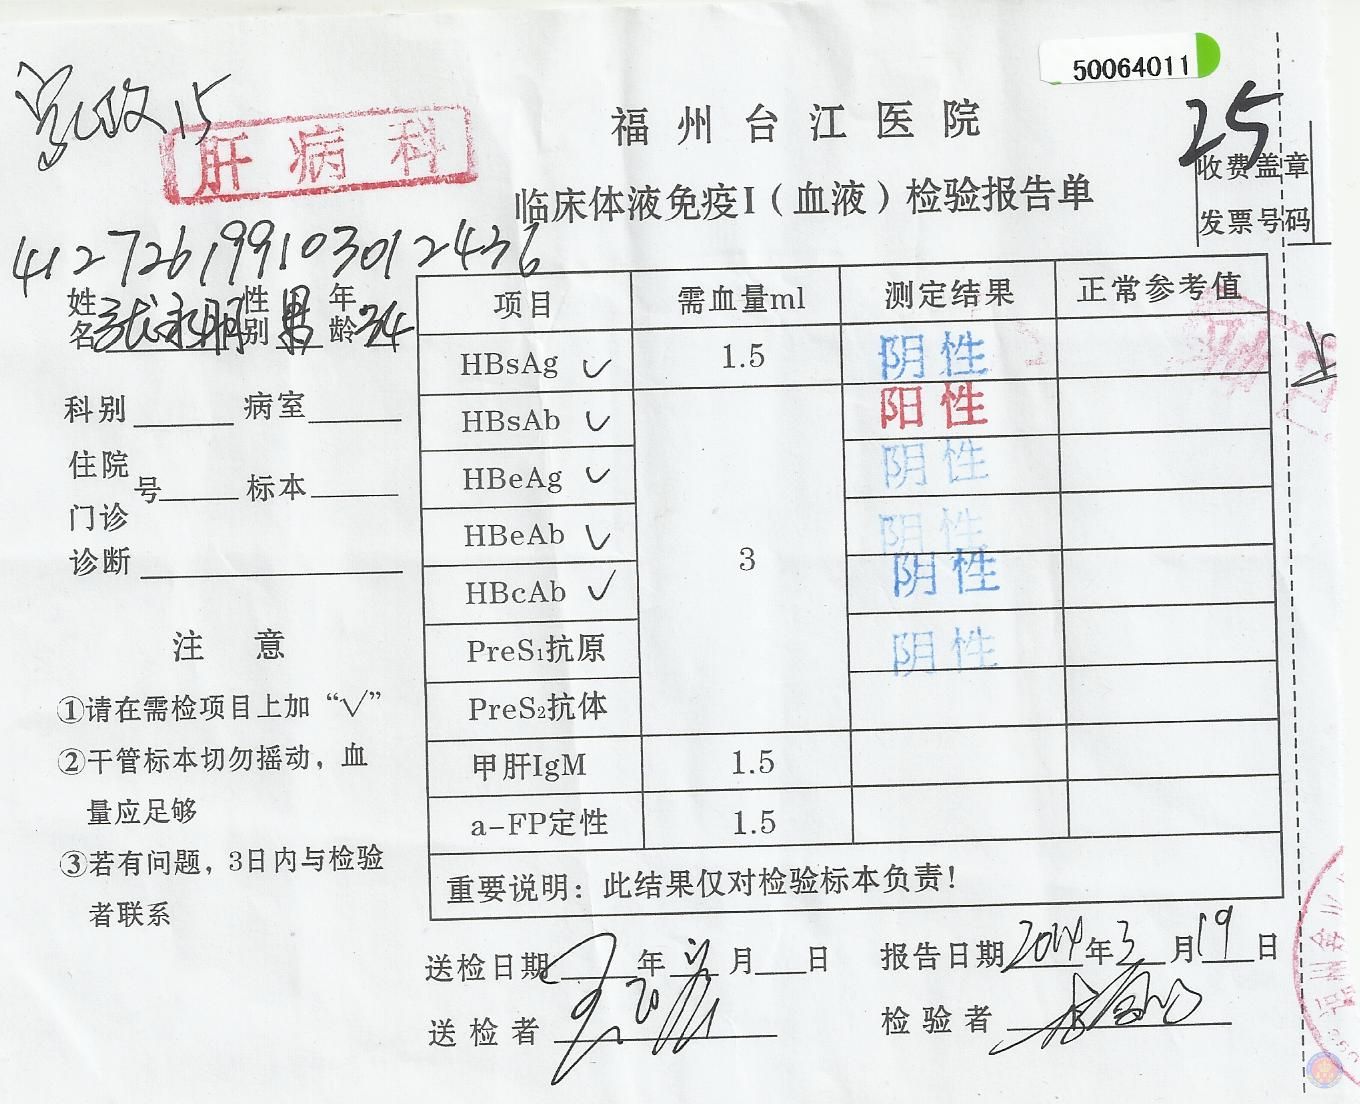 50064011
25
肝病科
福州台江医院
临床体液免疫I（血液）检验报告单
收费盖章
发票号码
412726199103012436
姓名 性别 男 年龄 24
科别 病室
住院
号 标本
门诊
诊断
注 意
①请在需检项目上加“√”
②干管标本切勿摇动，血
量应足够
③若有问题，3日内与检验
者联系
项目 需血量ml 测定结果 正常参考值
HBsAg √ 1.5 阴性
HBsAb √ 阳性
HBeAg √ 阴性
HBeAb √ 3 阴性
HBcAb √ 阴性
PreS₁抗原 阴性
PreS₂抗体
甲肝IgM 1.5
a-FP定性 1.5
重要说明：此结果仅对检验标本负责！
送检日期 年 月 日 报告日期 2014 年 3 月 19 日
送检者 检验者